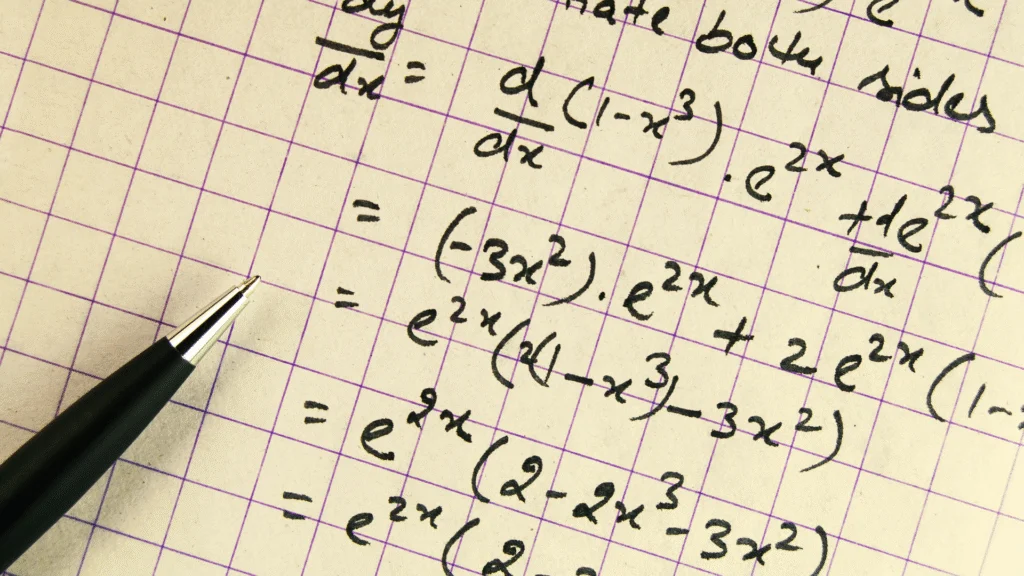 both sides
dy/dx = d/dx (1-x³) . e^2x + d/dx e^2x (
= (-3x²) . e^2x + 2 e^2x (1-
= e^2x (2(1-x³) - 3x²)
= e^2x (2 - 2x³ - 3x²)
= e^2x (2 -